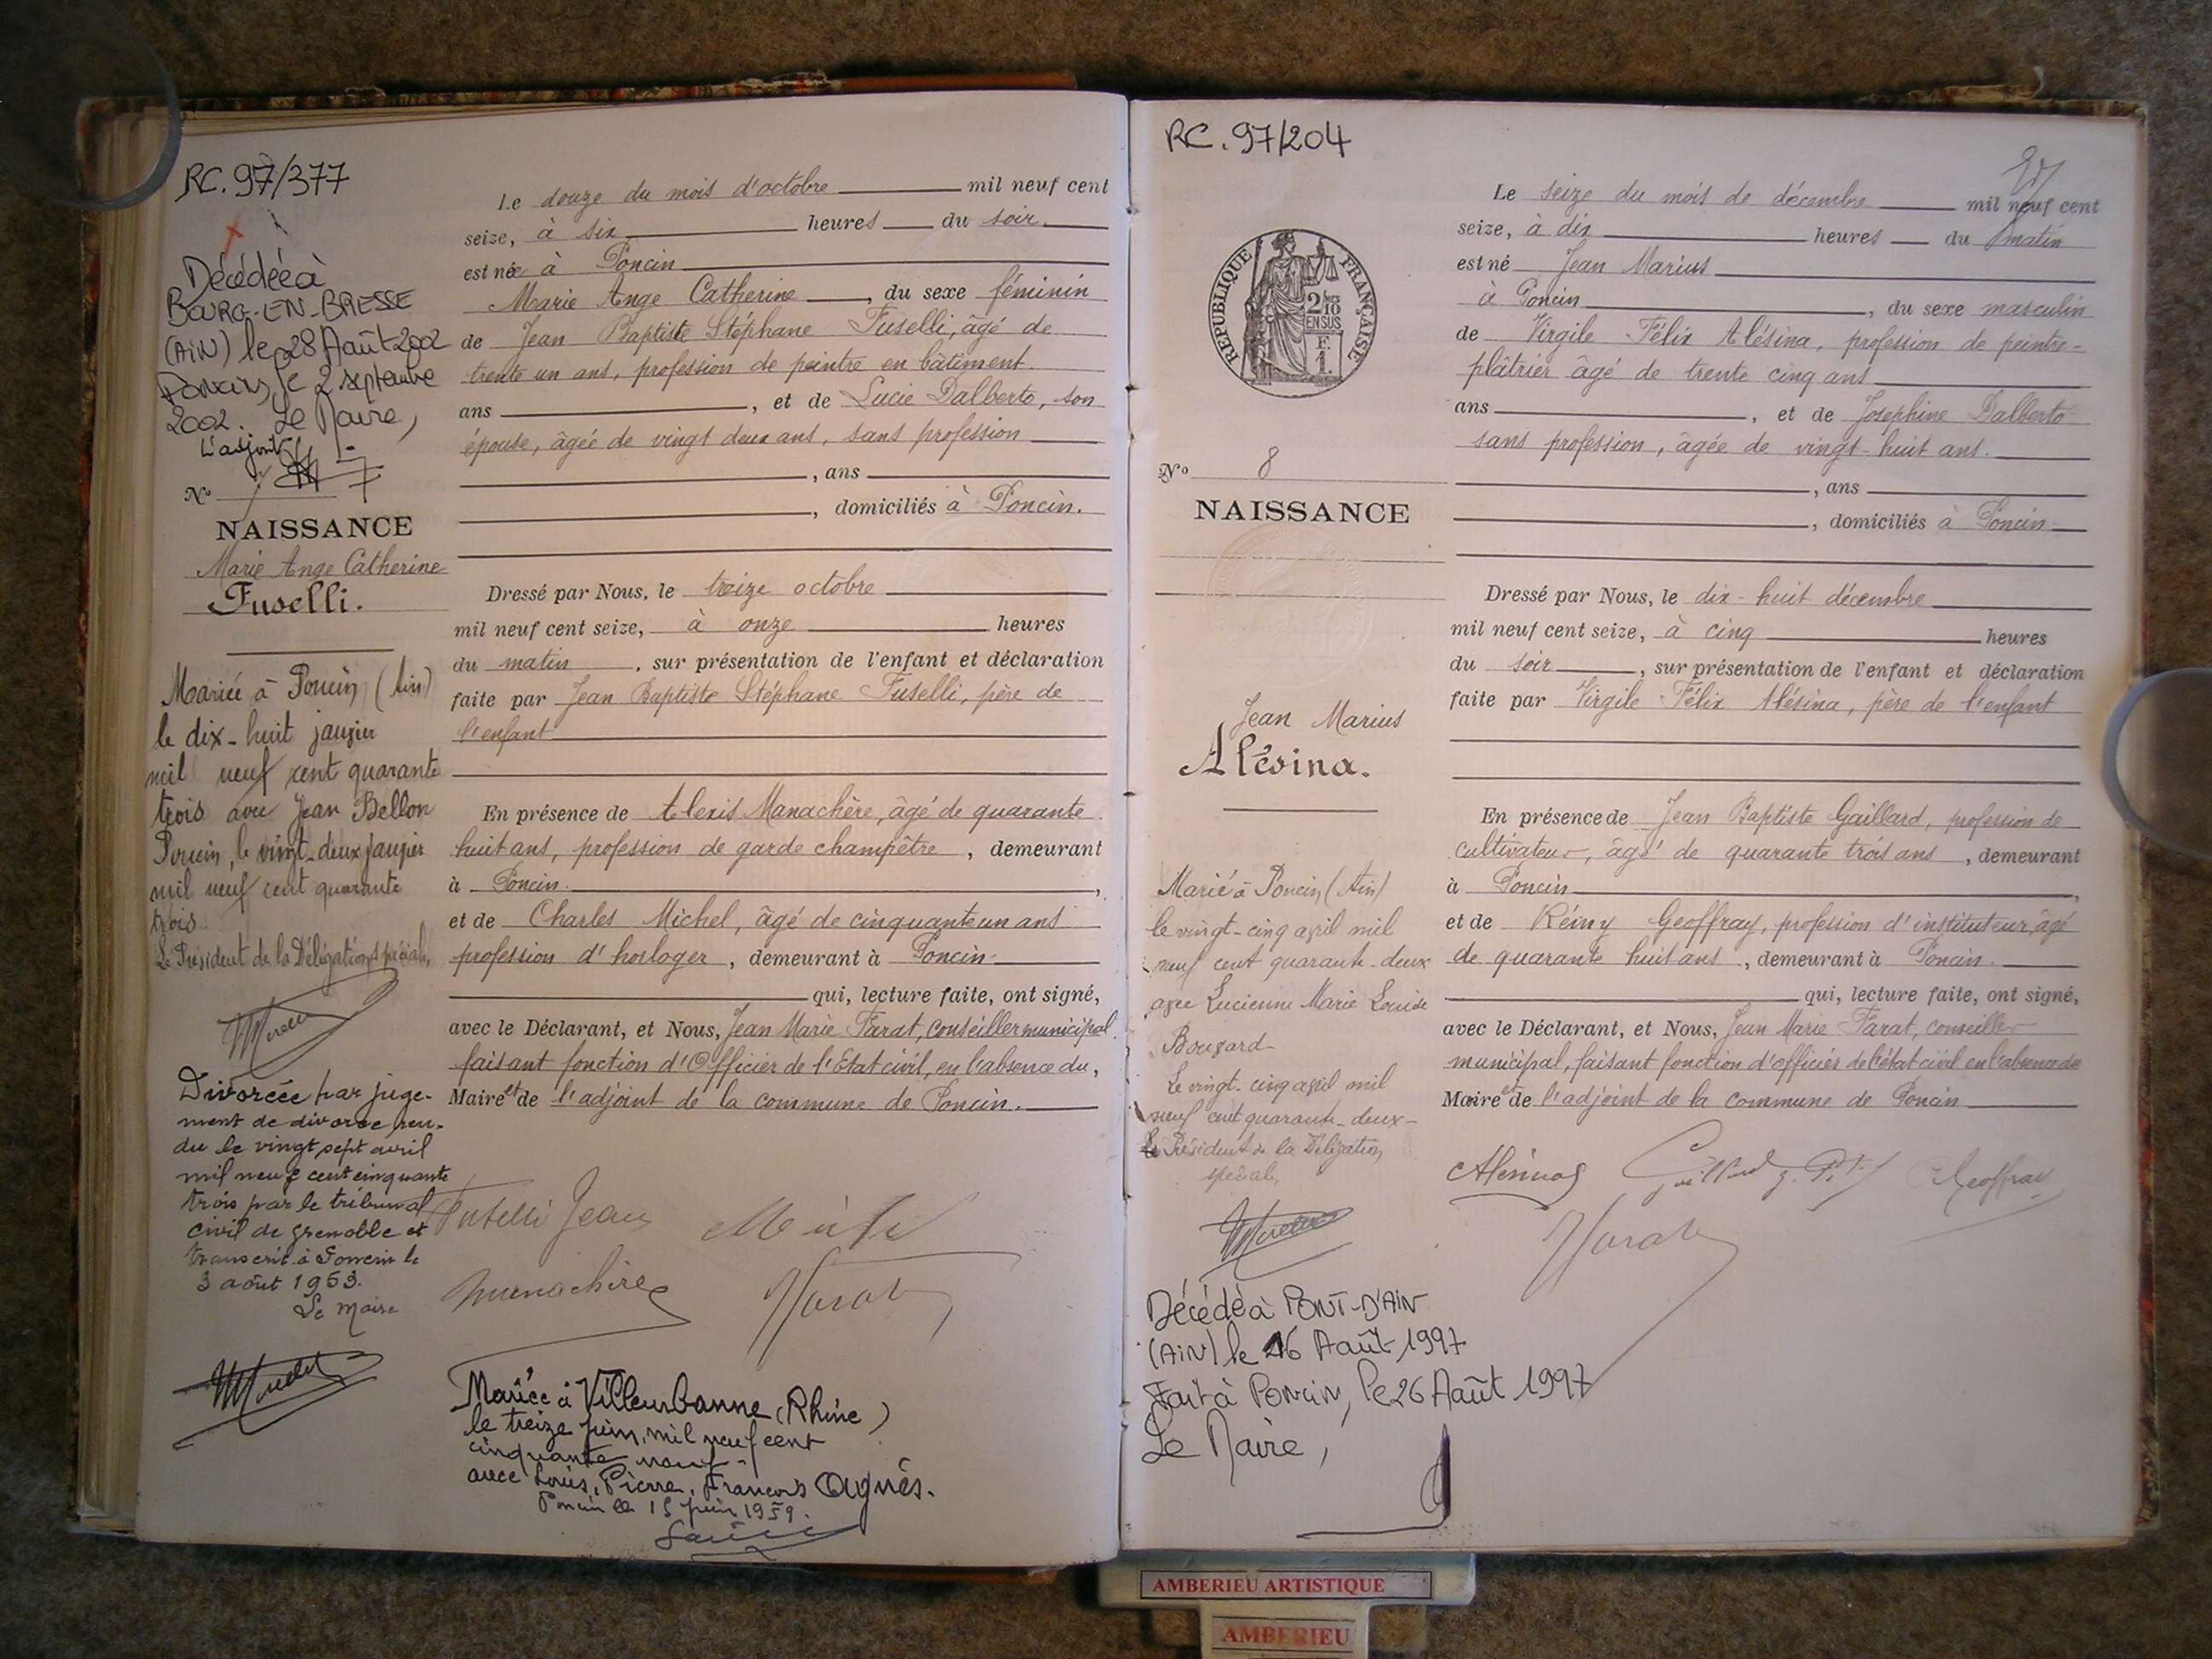 RC. 97/377
Décédée à
BOURG-EN-BRESSE
(AIN) le 28 Août 2002
Poncin, le 2 septembre
2002. Le Maire,
L'adjoint
No 7
NAISSANCE
Marie Ange Catherine
Fuselli.
Mariée à Poncin (Ain)
le dix-huit janvier
mil neuf cent quarante
trois avec Jean Bellon
Poncin, le vingt-deux janvier
mil neuf cent quarante
trois
Le Président de la Délégation spéciale,
Divorcée par juge-
ment de divorce ren-
du le vingt sept avril
mil neuf cent cinquante
trois par le tribunal
civil de Grenoble et
transcrit à Poncin le
3 août 1953.
Le Maire
Le douze du mois d'octobre mil neuf cent
seize, à six heures du soir
est née à Poncin
Marie Ange Catherine, du sexe féminin
de Jean Baptiste Stéphane Fuselli, âgé de
trente un ans, profession de peintre en bâtiment.
ans, et de Lucie Dalberto, son
épouse, âgée de vingt deux ans, sans profession
, ans
, domiciliés à Poncin.
Dressé par Nous, le treize octobre
mil neuf cent seize, à onze heures
du matin, sur présentation de l'enfant et déclaration
faite par Jean Baptiste Stéphane Fuselli, père de
l'enfant
En présence de Alexis Manachère, âgé de quarante
huit ans, profession de garde champêtre, demeurant
à Poncin,
et de Charles Michel, âgé de cinquante un ans
profession d'horloger, demeurant à Poncin
qui, lecture faite, ont signé,
avec le Déclarant, et Nous, Jean Marie Farat, conseiller municipal
faisant fonction d'Officier de l'Etat civil, en l'absence du,
Maire et de l'adjoint de la commune de Poncin.
Fuselli Jean
Manachère Farat
Mariée à Villeurbanne (Rhône)
le treize juin mil neuf cent
cinquante neuf
avec Louis, Pierre, François Agnès.
Poncin le 15 juin 1959.
RC. 97/204
RÉPUBLIQUE FRANÇAISE
2/10
EN SUS
F.
1
No 8
NAISSANCE
Jean Marius
Alésina.
Marié à Poncin (Ain)
le vingt-cinq avril mil
neuf cent quarante-deux
avec Lucienne Marie Louise
Le vingt-cinq avril mil
neuf cent quarante-deux-
Le Président de la Délégation
spéciale,
Décédé à PONT-D'AIN
(AIN) le 16 Août 1997
Fait à Poncin, le 26 Août 1997
Le Maire,
Le seize du mois de décembre mil neuf cent
seize, à dix heures du matin
est né Jean Marius
à Poncin, du sexe masculin
de Virgile Félix Alésina, profession de peintre-
plâtrier âgé de trente cinq ans
ans, et de Josephine Dalberto
sans profession, âgée de vingt-huit ans.
, ans
, domiciliés à Poncin
Dressé par Nous, le dix-huit décembre
mil neuf cent seize, à cinq heures
du soir, sur présentation de l'enfant et déclaration
faite par Virgile Félix Alésina, père de l'enfant
En présence de Jean Baptiste Gaillard, profession de
cultivateur, âgé de quarante trois ans, demeurant
à Poncin,
et de Rémy Geoffray, profession d'instituteur âgé
de quarante huit ans, demeurant à Poncin.
qui, lecture faite, ont signé,
avec le Déclarant, et Nous, Jean Marie Farat, conseiller
municipal, faisant fonction d'officier de l'état civil en l'absence du
Maire et de l'adjoint de la commune de Poncin
Alésina Geoffray
Farat
AMBERIEU ARTISTIQUE
AMBERIEU